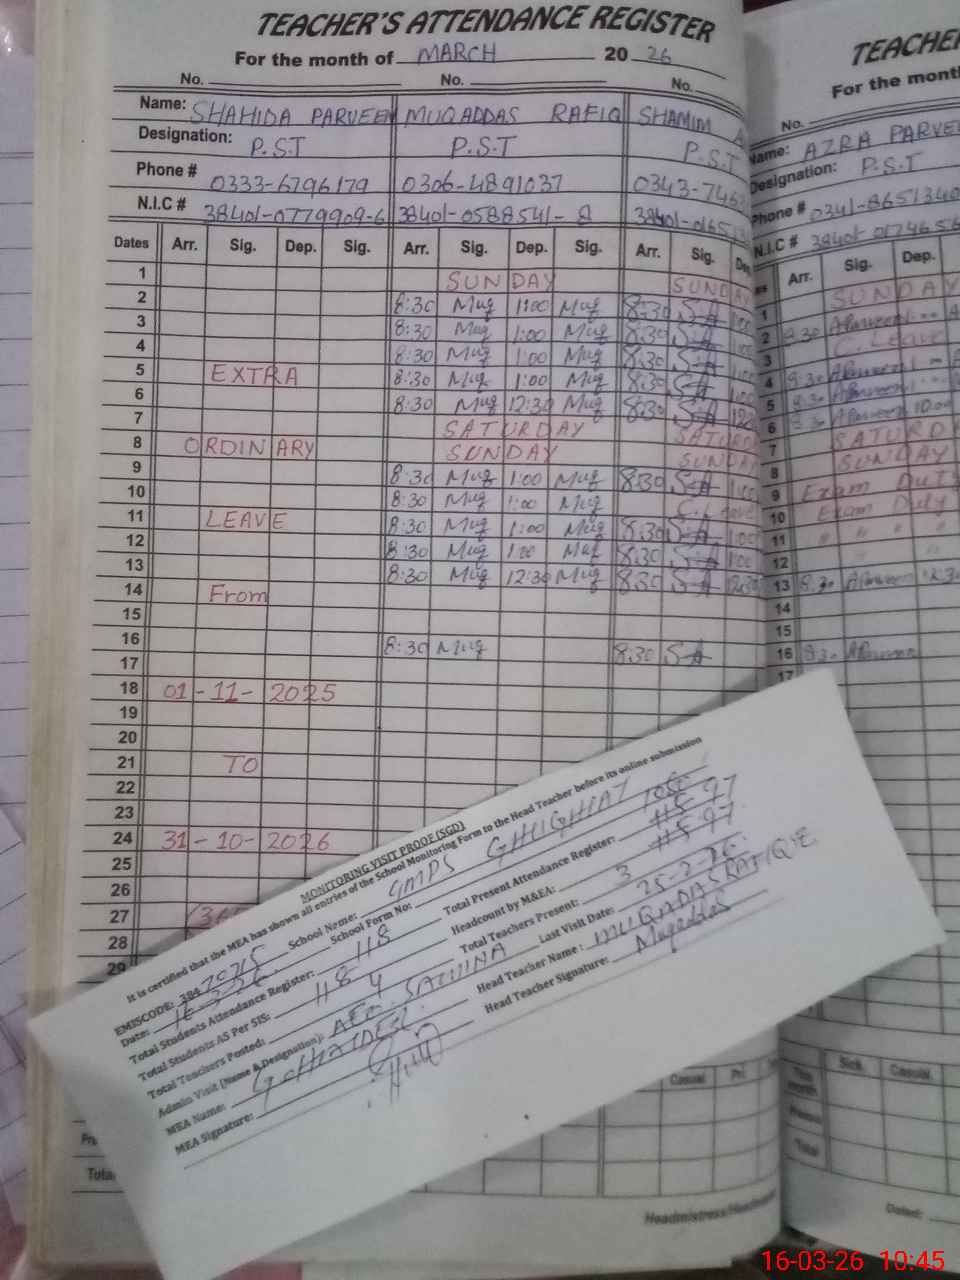 TEACHER'S ATTENDANCE REGISTER
For the month of MARCH 2026
No. No. No.
Name: SHAHIDA PARVEEN MUQADDAS RAFIQ SHAMIM
Designation: P.S.T P.S.T P.S.T
Phone # 0333-6796179 0306-4891037 0343-746
N.I.C # 38401-0779909-6 38401-0588541-8
Dates Arr. Sig. Dep. Sig. Arr. Sig. Dep. Sig. Arr. Sig.
1 SUNDAY SUNDAY
2 8:30 Muq 1:00 Muq 8:30 S.A 1:00
3 8:30 Muq 1:00 Muq 8:30 S.A 1:00
4 8:30 Muq 1:00 Muq 8:30 S.A 1:00
5 EXTRA 8:30 Muq 1:00 Muq 8:30 S.A 1:00
6 8:30 Muq 12:30 Muq 8:30 S.A
7 SATURDAY SATURDA
8 ORDINARY SUNDAY SUNDAY
9 8:30 Muq 1:00 Muq 8:30 S.A 1:00
10 8:30 Muq 1:00 Muq C. Leave
11 LEAVE 8:30 Muq 1:00 Muq 8:30 S.A 1:00
12 8:30 Muq 1:00 Muq 8:30 S.A 1:00
13 8:30 Muq 12:30 Muq 8:30 S.A 12:30
14 From
15
16 8:30 Muq 8:30 S.A
17
18 01-11-2025
19
20
21 TO
22
23
24 31-10-2026
25
26
27
28
29
Total
Casual
Headmistress/Head
TEACHE
For the mont
No.
Name: AZRA PARVE
Designation: P.S.T
Phone # 0341-8651340
N.I.C # 38401-0174656
Arr. Sig. Dep.
1 SUNDAY
2 8:30 AParveen 1:00
3 C. Leave
4 8:30 AParveen 1:00
5 8:30 AParveen 1:00
6 8:30 AParveen 10:00
7 SATURD
8 SUNDAY
9 Exam Duty
10 Exam Duty
11 " " "
12 "
13 8:30 AParveen 12:30
14
15
16 8:30 AParveen
17
Sick Casual
Total
Dated:
MONITORING VISIT PROOF (SGD)
It is certified that the MEA has shown all entries of the School Monitoring Form to the Head Teacher before its online submission
EMISCODE: 38420215 School Name: GMPS GHUGHIAT
Date: 16-3-26 School Form No:
Total Students Attendance Register: 118 Total Present Attendance Register: 97
Total Students AS Per SIS: 118 Headcount by M&EA: 97
Total Teachers Posted: 4 Total Teachers Present: 3
Admin Visit (Name & Designation): AEO. Last Visit Date: 25-2-26
MEA Name: Head Teacher Name: MUQADDAS RAFIQUE
MEA Signature: Head Teacher Signature: Muqaddas
16-03-26 10:45